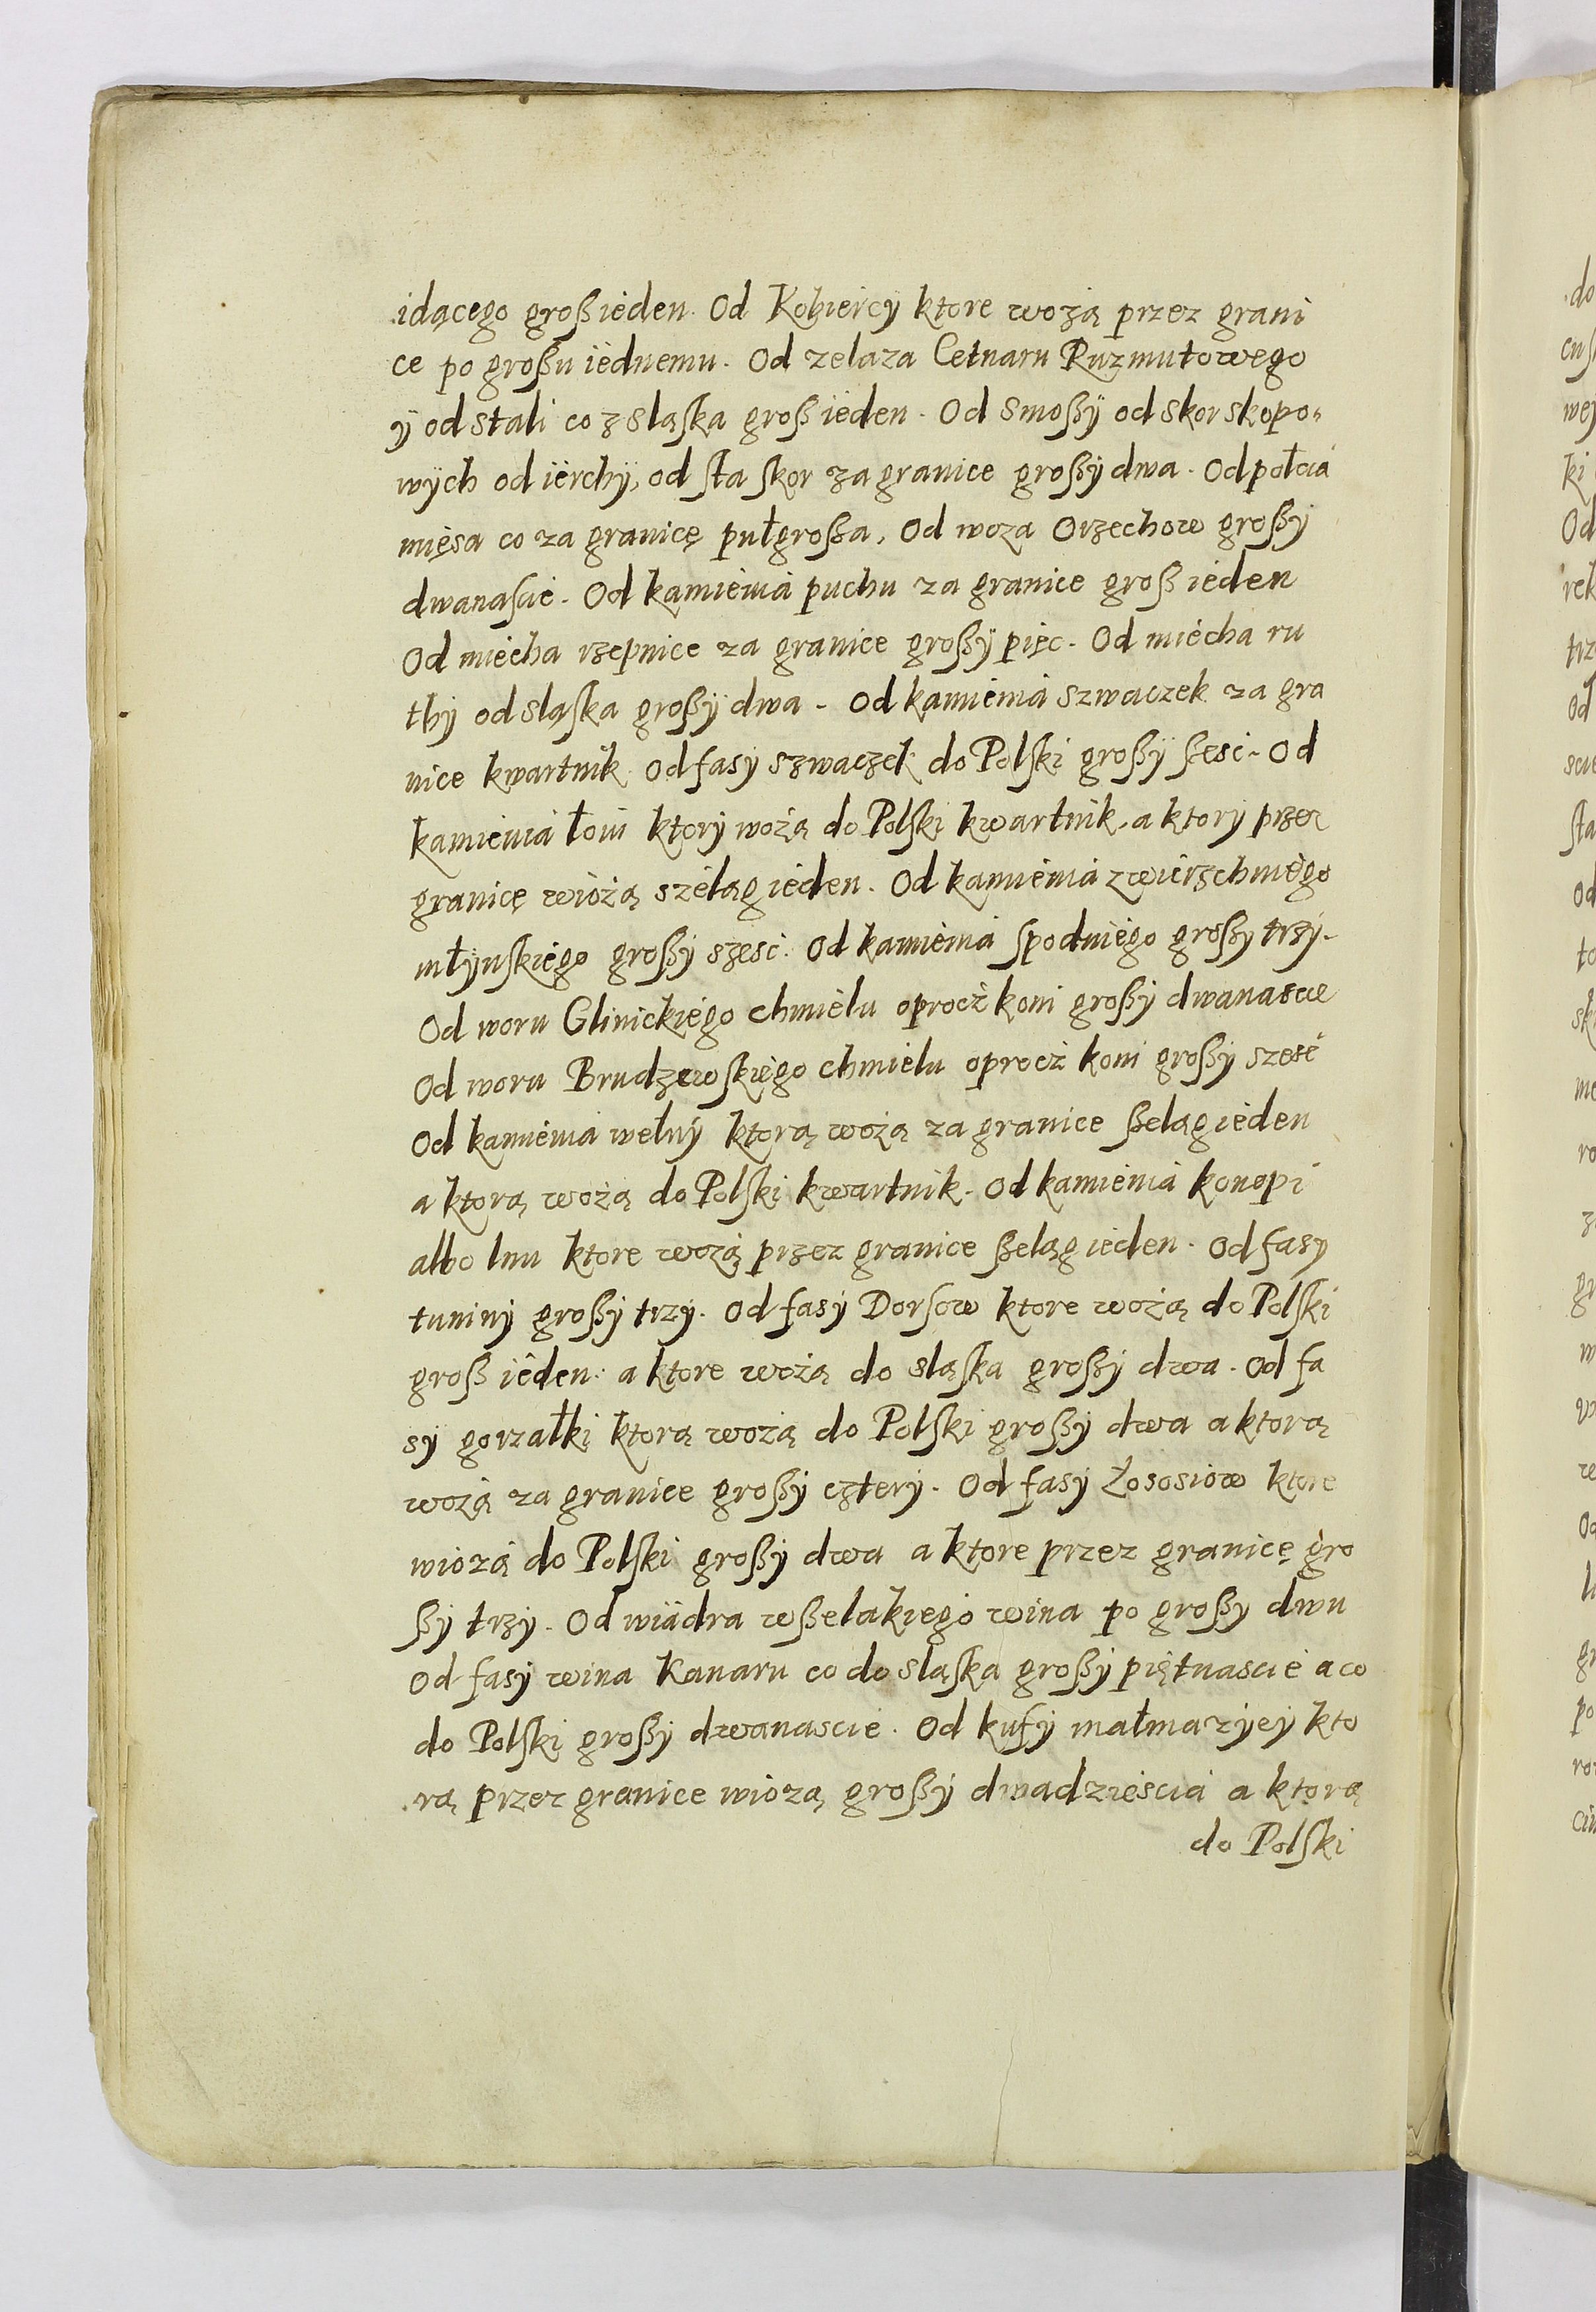 idącego groß ieden. Od Kobiercy ktore wożą przez grani
ce po großu iednemu. Od zelaza Cetnaru Ruzmutowego
ÿ od stali co z slaska groß ieden. Od smoßÿ od skor skopo=
wÿch od ierchÿ, od sta skor za granice großÿ dwa. Od połcia
mięsa co za granicę pułgroßa, Od woza Orzechow großÿ
dwanascie. Od kamienia puchu za granice groß ieden
Od miecha rzepnice za granice großÿ pięc. Od miecha ru
thÿ od slaska großÿ dwa. Od kamienia szwaczek za gra
nice kwartnik. Od fasy szwaczek do Polski großÿ ßesc. Od
kamienia łoiu ktorÿ wożą do Polski kwartnik, a ktorÿ przez
granicę wiożą szelągieden. Od kamienia zwierzchniego
młÿnskiego großÿ szesc. Od kamienia spodniego großÿ trzÿ.
Od woru Glinickiego chmielu oprocz koni großÿ dwanascie
Od woru Brudzewskiego chmielu oprocz koni großÿ szesc
Od kamienia wełnÿ ktorą wożą za granice ßelągieden
a ktorą wożą do Polski kwartnik. Od kamienia konopi
albo lnu ktore wożą przez granice ßeląg ieden. Od fasy
tuninÿ großÿ trzÿ. Od fasÿ Dorsow ktore wożą do Polski
groß ieden: a ktore wożą do slaska großÿ dwa. Od fa
sÿ gorzałki ktorą wożą do Polski großÿ dwa a ktorą
wożą za granice großÿ czterÿ. Od fasÿ Łososiow ktore
wiozą do Polski großÿ dwa a ktore przez granicę gro
ßÿ trzÿ. Od wiadra wßelakiego wina po großÿ dwu
Od fasÿ wina Kanaru co do slaska großÿ piętnascie a co
do Polski großÿ dwanascie. Od kufÿ małmazÿey kto
rą przez granice wiozą großÿ dwadziescia a ktorą
do Polski